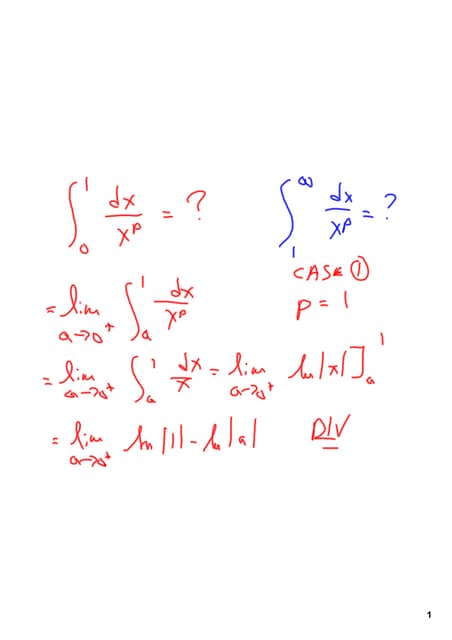 ∫₀¹ dx/x^p = ?
∫₁^∞ dx/x^p = ?
CASE ①
p = 1
= lim_{a→0⁺} ∫ₐ¹ dx/x^p
= lim_{a→0⁺} ∫ₐ¹ dx/x = lim_{a→0⁺} ln|x|]ₐ¹
= lim_{a→0⁺} ln|1| - ln|a| DIV
1